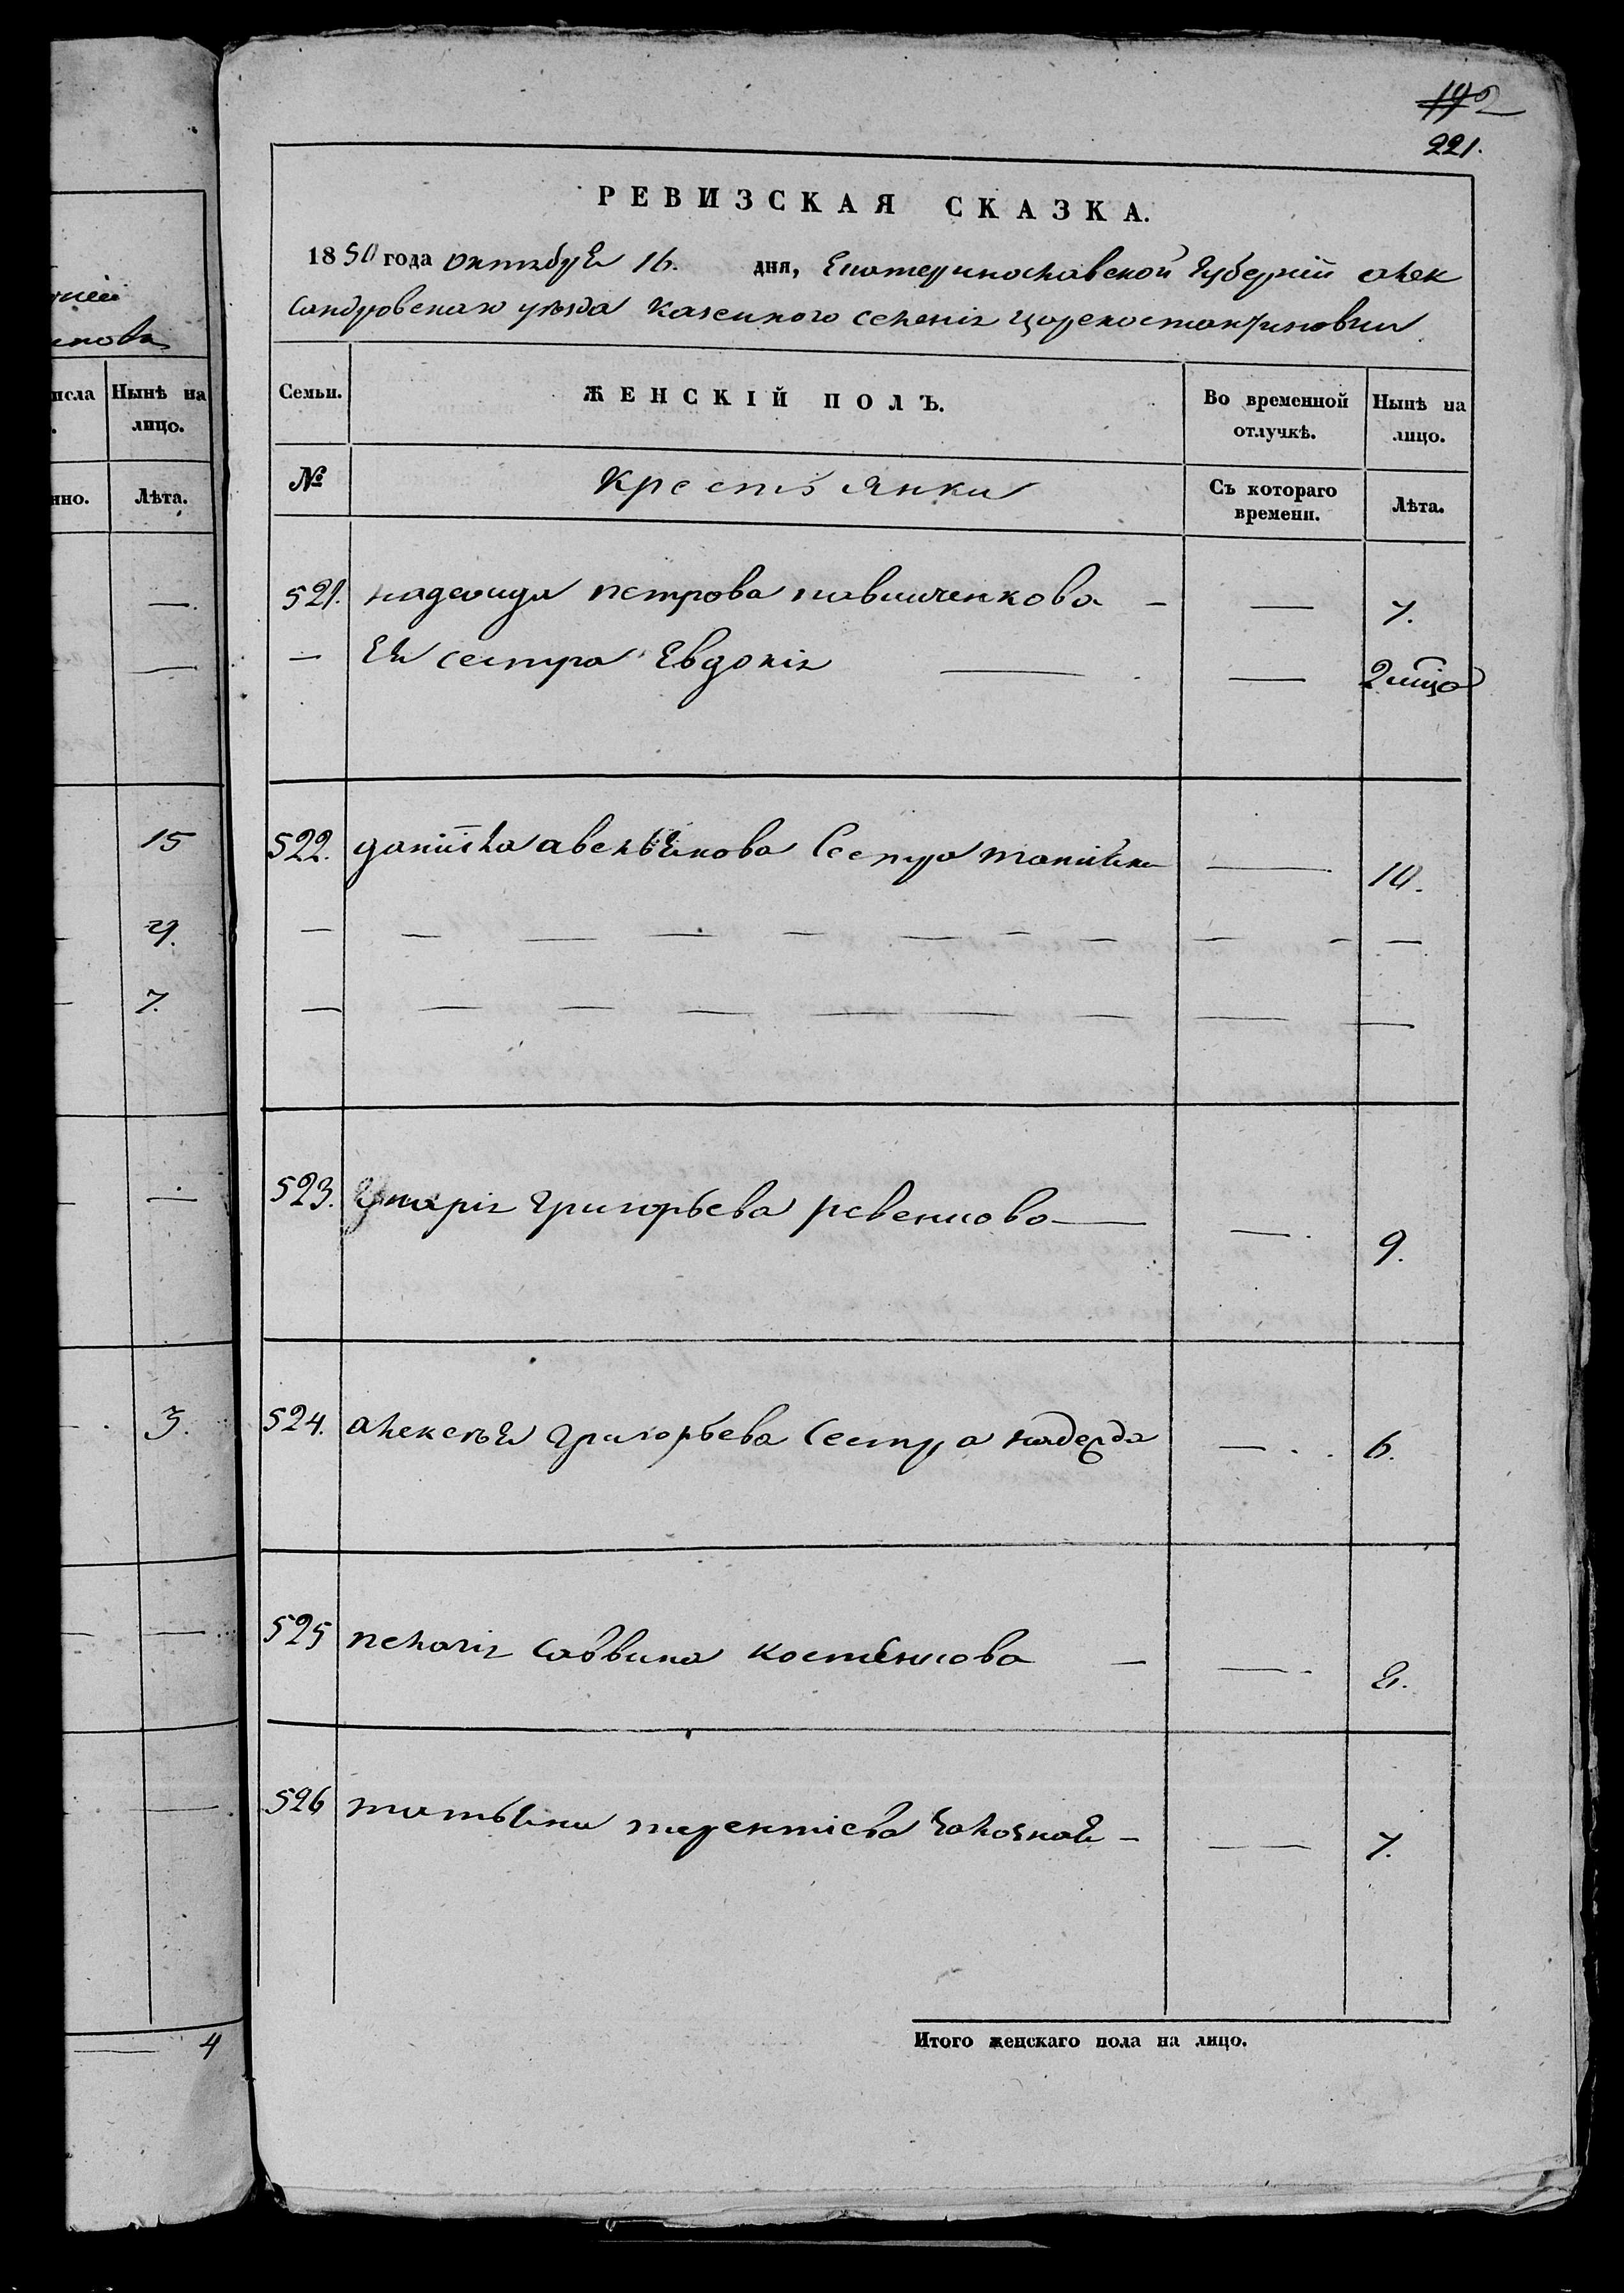 192
221.
РЕВИЗСКАЯ СКАЗКА.
1850 года октебря 16. дня, Екатеринославской Губерніи алек
сандровскаго уезда Казенного селенія Цареконстантиновки
Семьи.
ЖЕНСКІЙ ПОЛЪ.
Во временной отлучкѣ.
Нынѣ на лицо.
№
Крестьянки
Съ котораго времени.
Лѣта.
521. надежда петрова — — 7.
— Ея сестра Евдокія — — 2
522. данійла Сестра — 10.
— — — — — — — — — — —
— — — — — — — — — — —
523. григорьева ревенкова — — 9.
524. алексѣя григорьева Сестра надежда — 6.
525 пелагія саввина костенкова — — 8.
526 татьяна терентіева — — 7.
Итого женскаго пола на лицо.
Нынѣ на лицо.
Лѣта.
—
—
15
9.
7.
—
3.
—
—
— 4